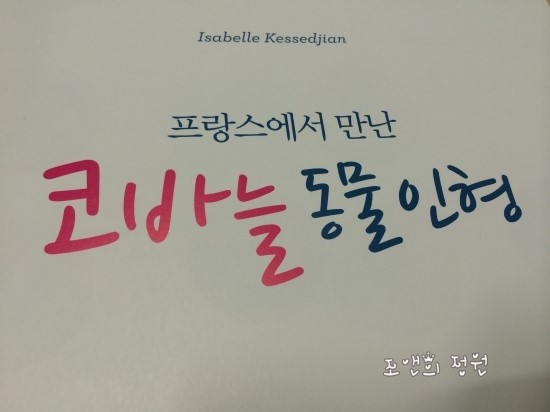 Isabelle Kessedjian
프랑스에서 만난
코바늘 동물 인형
조앤희 정원